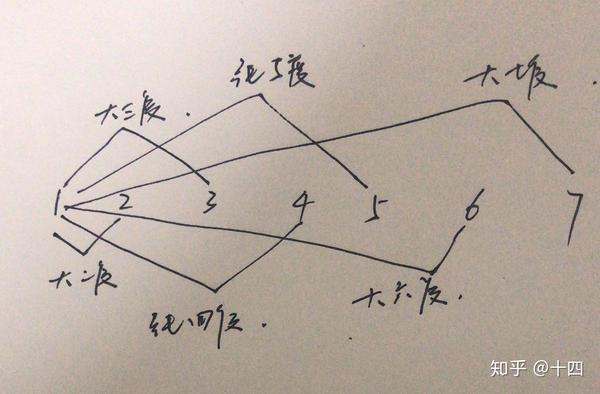 纯5度
大七度
大三度.
1 2 3 4 5 6 7
大二度
纯四度.
大六度.
知乎 @十四